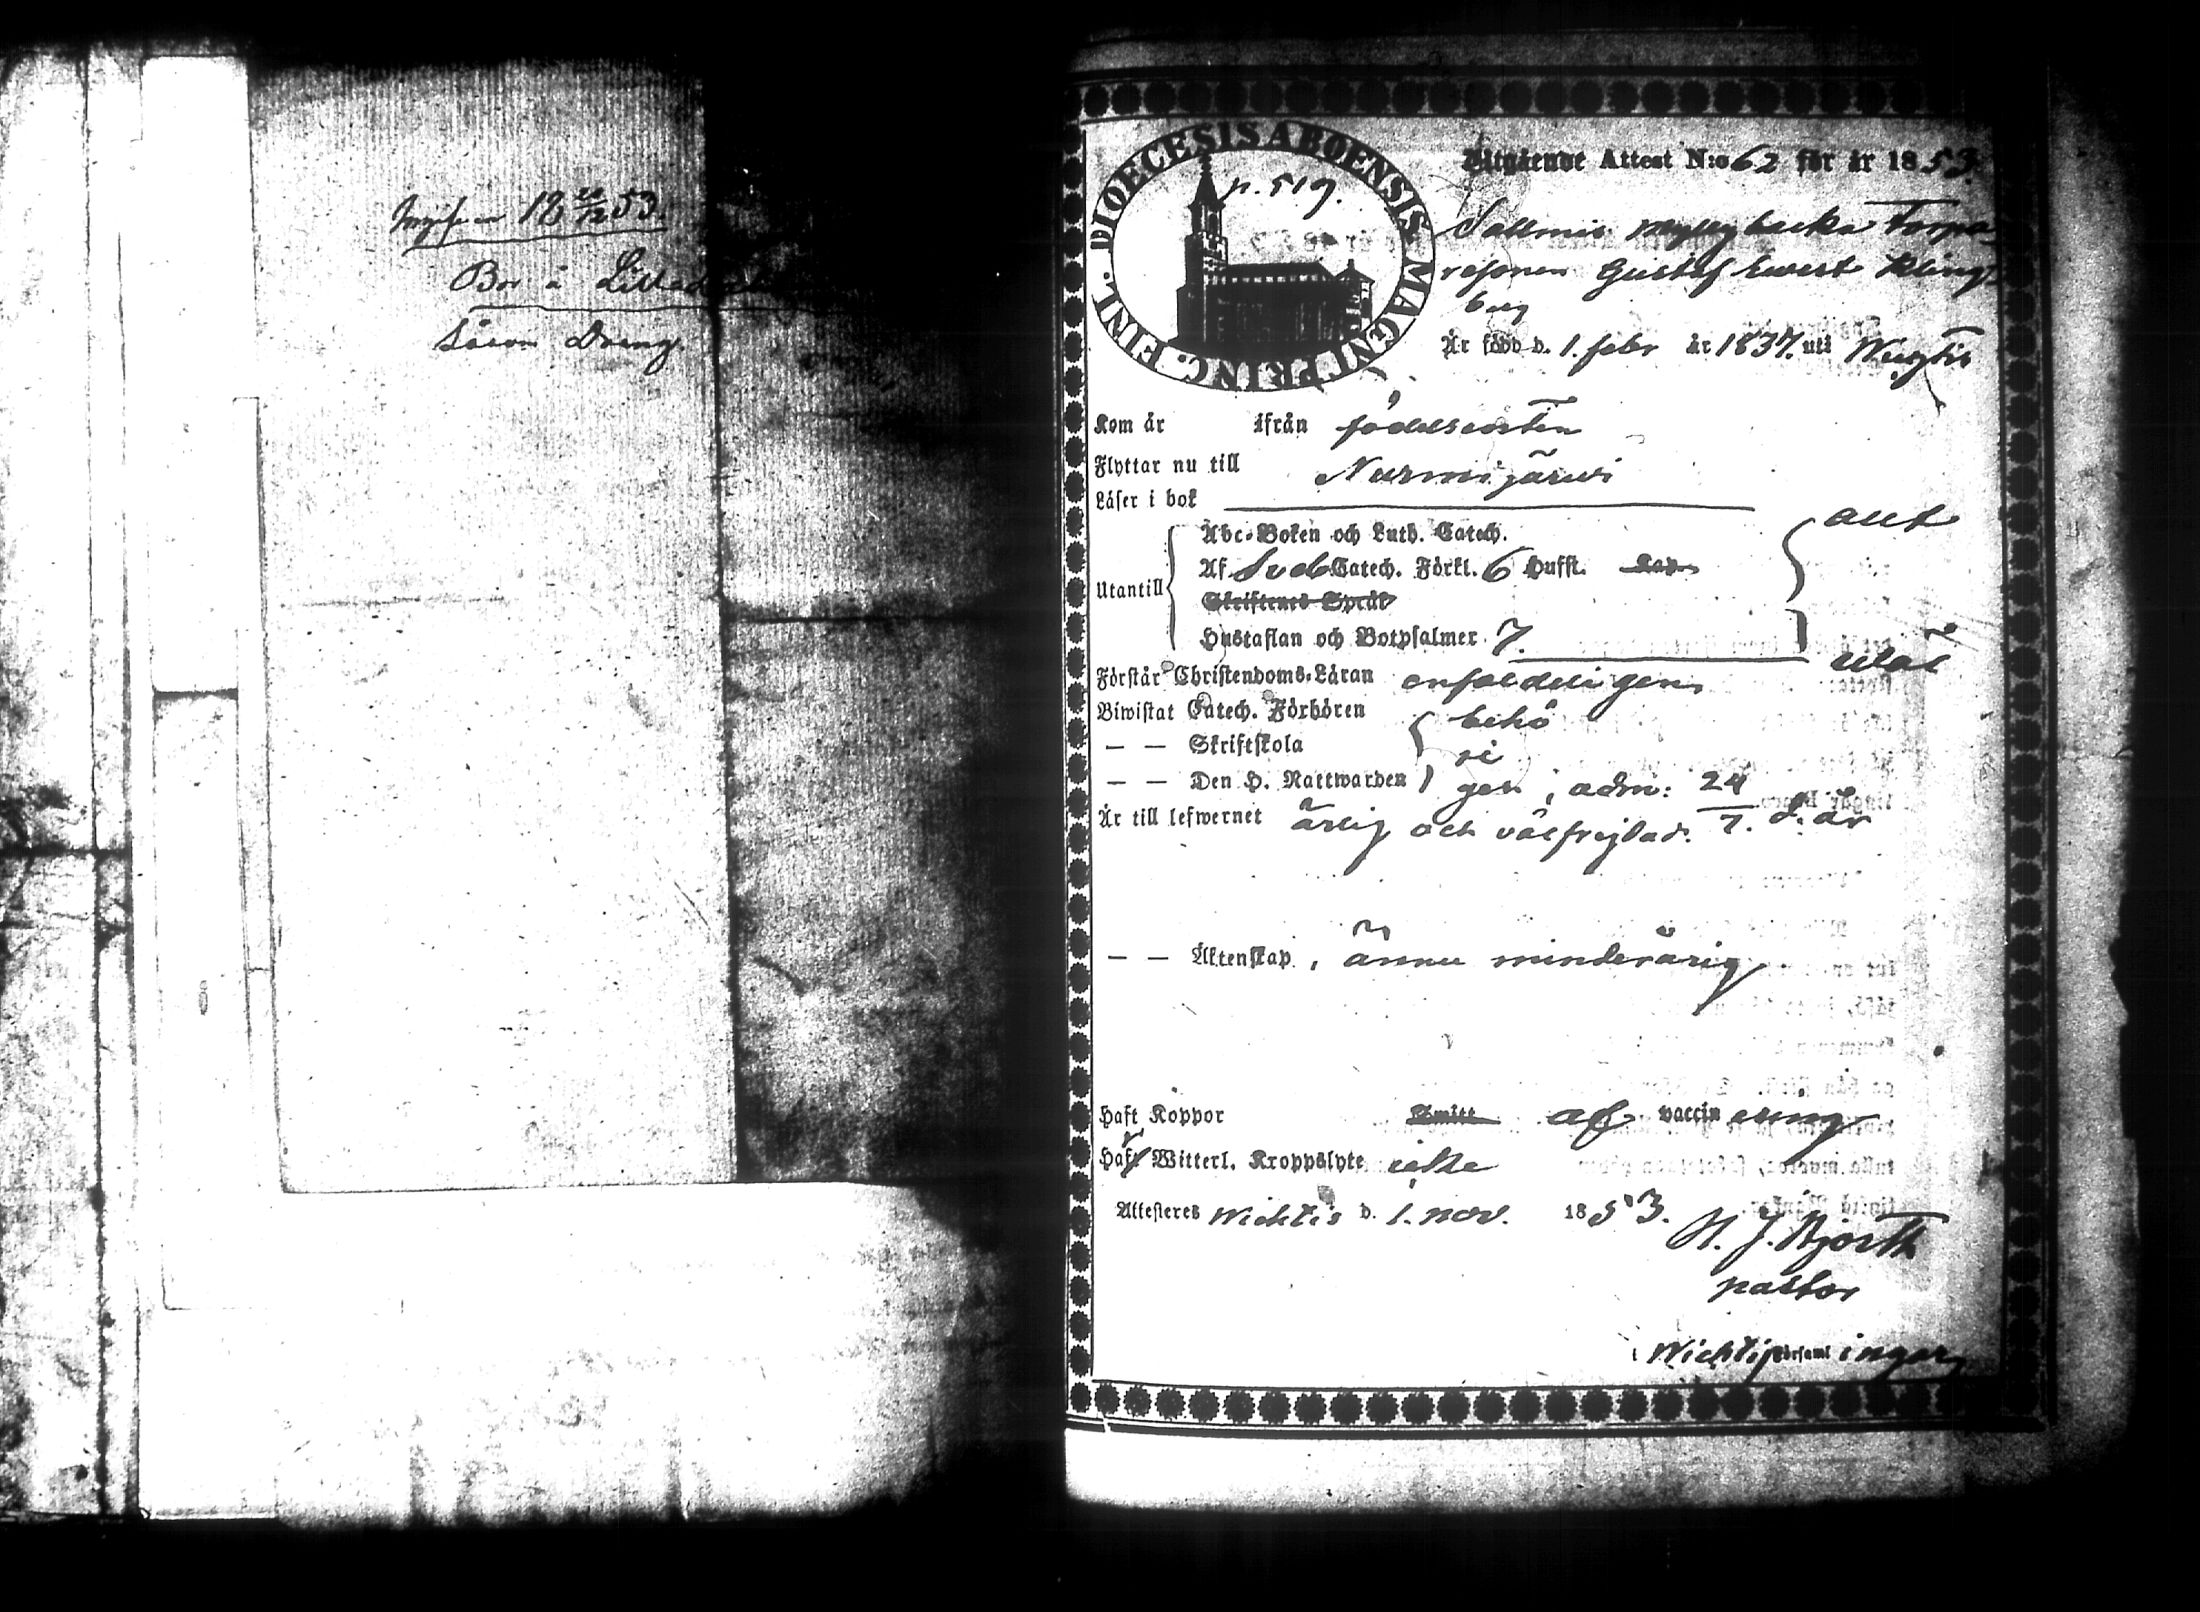 18 20/12 53.
Bor å
såsom Dreng
DIOECESIS ABOENSIS MAGNI PRINC. FINL.
p. 519.
Utgående Attest N:o 62 för år 1853.
Torpa-
resonen Gustaf Ewert Kling-
berg
Är född d. 1. febr år 1837. uti Wichtis
Kom år ifrån födelseorten
Flyttar nu till Nurmijärwi
Läser i bok
Abc-Boken och Luth. Catech.
Af Sveb Catech. Förkl. 6 Hufst. Kap.
Utantill
Skriftenes Språk
Hustaflan och Botpsalmer 7.
allt
utal
Förstår Christendoms-Läran enfaldeligen
Biwistat Catech. Förhören behö
— — Skriftskola ri
— — Den H. Nattwarden gen; adm: 24
Är till lefwernet ärlig och välfrejdad. 7. d. år
— — Äktenskap, ännu minderårig
Haft Koppor Smitt af vaccinering
Haft Witterl. Kroppslyte icke
Attesteras Wichtis d. 1. nov. 1853.
H. J. Hjorth
pastor
i Wichtis Församlingar